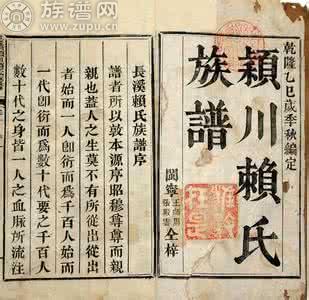 族谱网
www.zupu.cn
乾隆乙巳歲季秋編定
穎川賴氏
族譜
閩寧
仝梓
長溪賴氏族譜序
譜者所以敦本源序昭穆尊尊而親
親也蓋人之生莫不有所從出從出
者始而一人卽衍而爲千百人始而
一代卽衍而爲數十代之千百人
數十代之身皆一人之血脈所流注